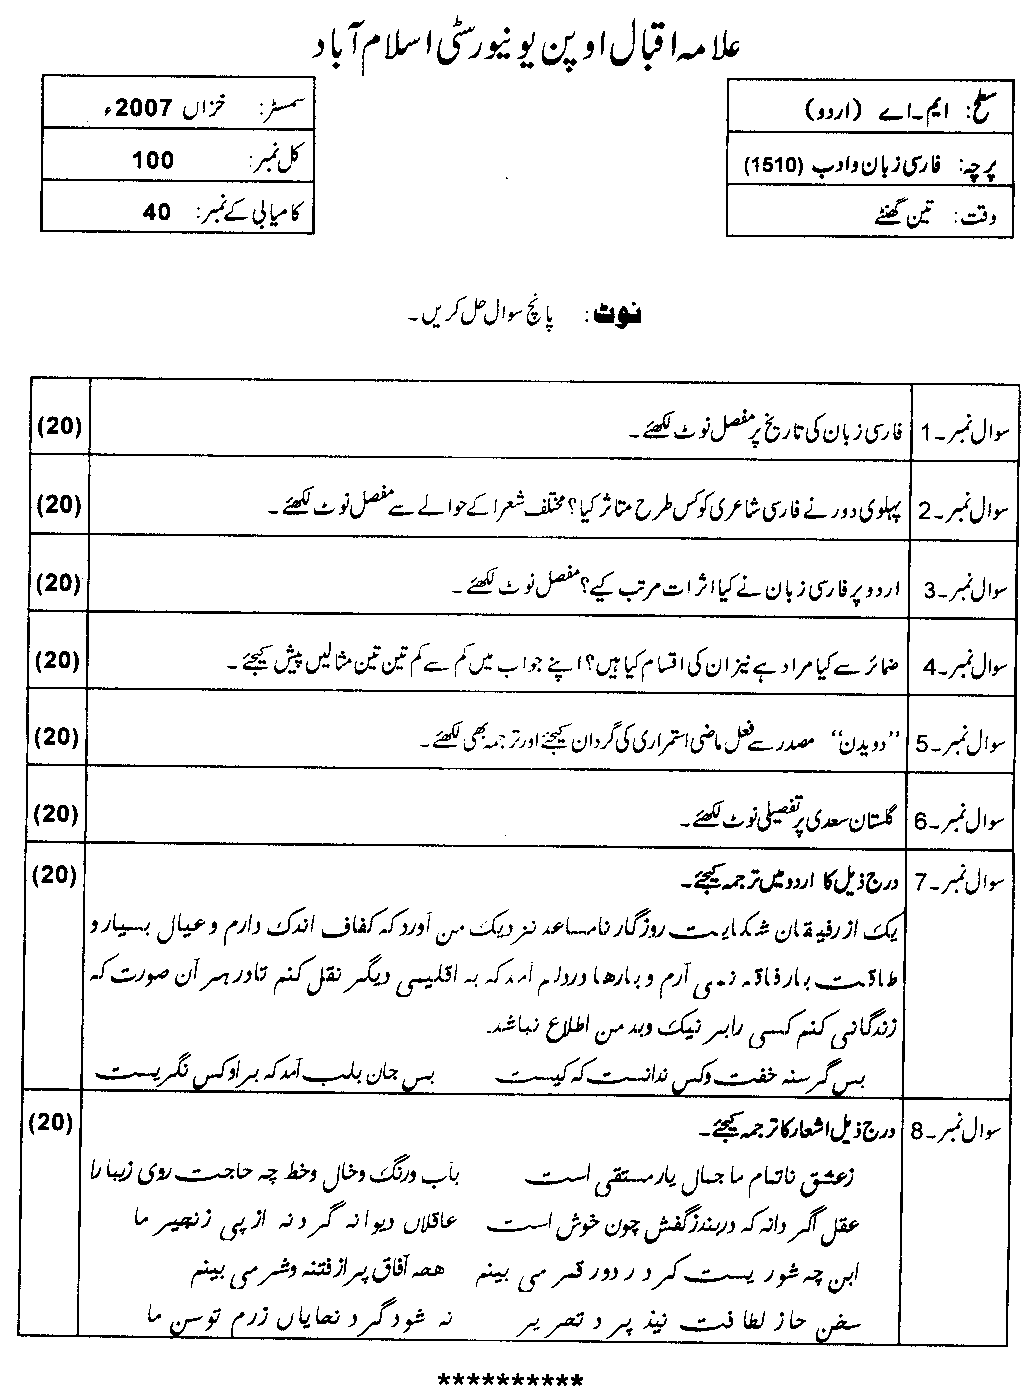 علامہ اقبال اوپن یونیورسٹی اسلام آباد
سطح: ایم۔اے (اردو)
پرچہ: فارسی زبان و ادب (1510)
وقت: تین گھنٹے
سمسٹر: خزاں 2007ء
کل نمبر: 100
کامیابی کے نمبر: 40
نوٹ: پانچ سوال حل کریں۔
سوال نمبر۔1 فارسی زبان کی تاریخ پر مفصل نوٹ لکھئے۔ (20)
سوال نمبر۔2 پہلوی دور نے فارسی شاعری کو کس طرح متاثر کیا؟ مختلف شعرا کے حوالے سے مفصل نوٹ لکھئے۔ (20)
سوال نمبر۔3 اردو پر فارسی زبان نے کیا اثرات مرتب کیے؟ مفصل نوٹ لکھئے۔ (20)
سوال نمبر۔4 ضمائر سے کیا مراد ہے نیز ان کی اقسام کیا ہیں؟ اپنے جواب میں کم سے کم تین تین مثالیں پیش کیجئے۔ (20)
سوال نمبر۔5 "دویدن" مصدر سے فعل ماضی استمراری کی گردان کیجئے اور ترجمہ بھی لکھئے۔ (20)
سوال نمبر۔6 گلستان سعدی پر تفصیلی نوٹ لکھئے۔ (20)
سوال نمبر۔7 درج ذیل کا اردو میں ترجمہ کیجئے۔ (20)
یک از رفیقان شکایت روزگار نامساعد نزدیک من آورد کہ کفاف اندک دارم و عیال بسیار و
طاقت بار فاقہ نمی آرم و بارها در دلم آمد کہ بہ اقلیمی دیگر نقل کنم تا در ہر آن صورت کہ
زندگانی کنم کسی را بر نیک و بد من اطلاع نباشد.
بس گرسنہ خفت و کس ندانست کہ کیست بس جان بلب آمد کہ بر او کس نگریست
سوال نمبر۔8 درج ذیل اشعار کا ترجمہ کیجئے۔ (20)
ز عشق ناتمام ما جمال یار مستغنی است باب و رنگ و خال و خط چہ حاجت روی زیبا را
عقل اگر دانہ کہ در بند زلفش چون خوش است عاقلان دیوانہ گردنہ از پی زنجیر ما
این چہ شوریست کہ در دور قمر می بینم ھمہ آفاق پر از فتنہ و شر می بینم
سخن حاز لطافت نیذیرد تحریر نہ شود گرد نمایاں زرم توسن ما
**********